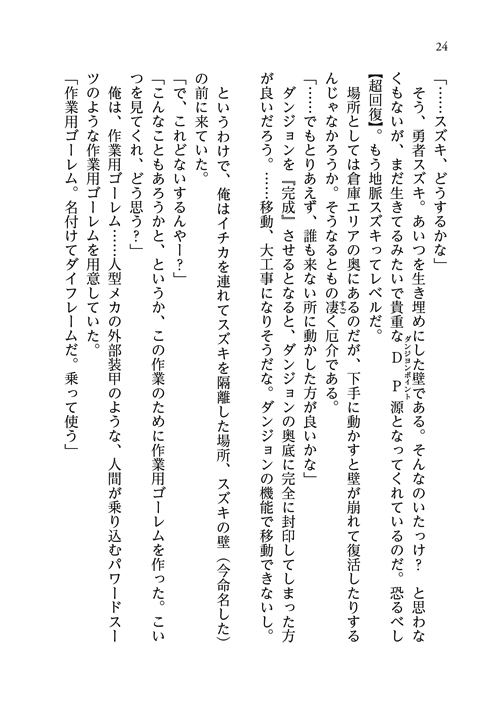 24
「……スズキ、どうするかな」
　そう、勇者スズキ。あいつを生き埋めにした壁である。そんなのいたっけ？　と思わな
くもないが、まだ生きてるみたいで貴重なＤＰ源となってくれているのだ。恐るべし
ダンジョンポイント
【超回復】。もう地脈スズキってレベルだ。
　場所としては倉庫エリアの奥にあるのだが、下手に動かすと壁が崩れて復活したりする
んじゃなかろうか。そうなるともの凄く厄介である。
すご
「……でもとりあえず、誰も来ない所に動かした方が良いかな」
　ダンジョンを『完成』させるとなると、ダンジョンの奥底に完全に封印してしまった方
が良いだろう。……移動、大工事になりそうだな。ダンジョンの機能で移動できないし。
　というわけで、俺はイチカを連れてスズキを隔離した場所、スズキの壁（今命名した）
の前に来ていた。
「で、これどないするんやー？」
「こんなこともあろうかと、というか、この作業のために作業用ゴーレムを作った。こい
つを見てくれ、どう思う？」
　俺は、作業用ゴーレム……人型メカの外部装甲のような、人間が乗り込むパワードスー
ツのような作業用ゴーレムを用意していた。
「作業用ゴーレム。名付けてダイフレームだ。乗って使う」